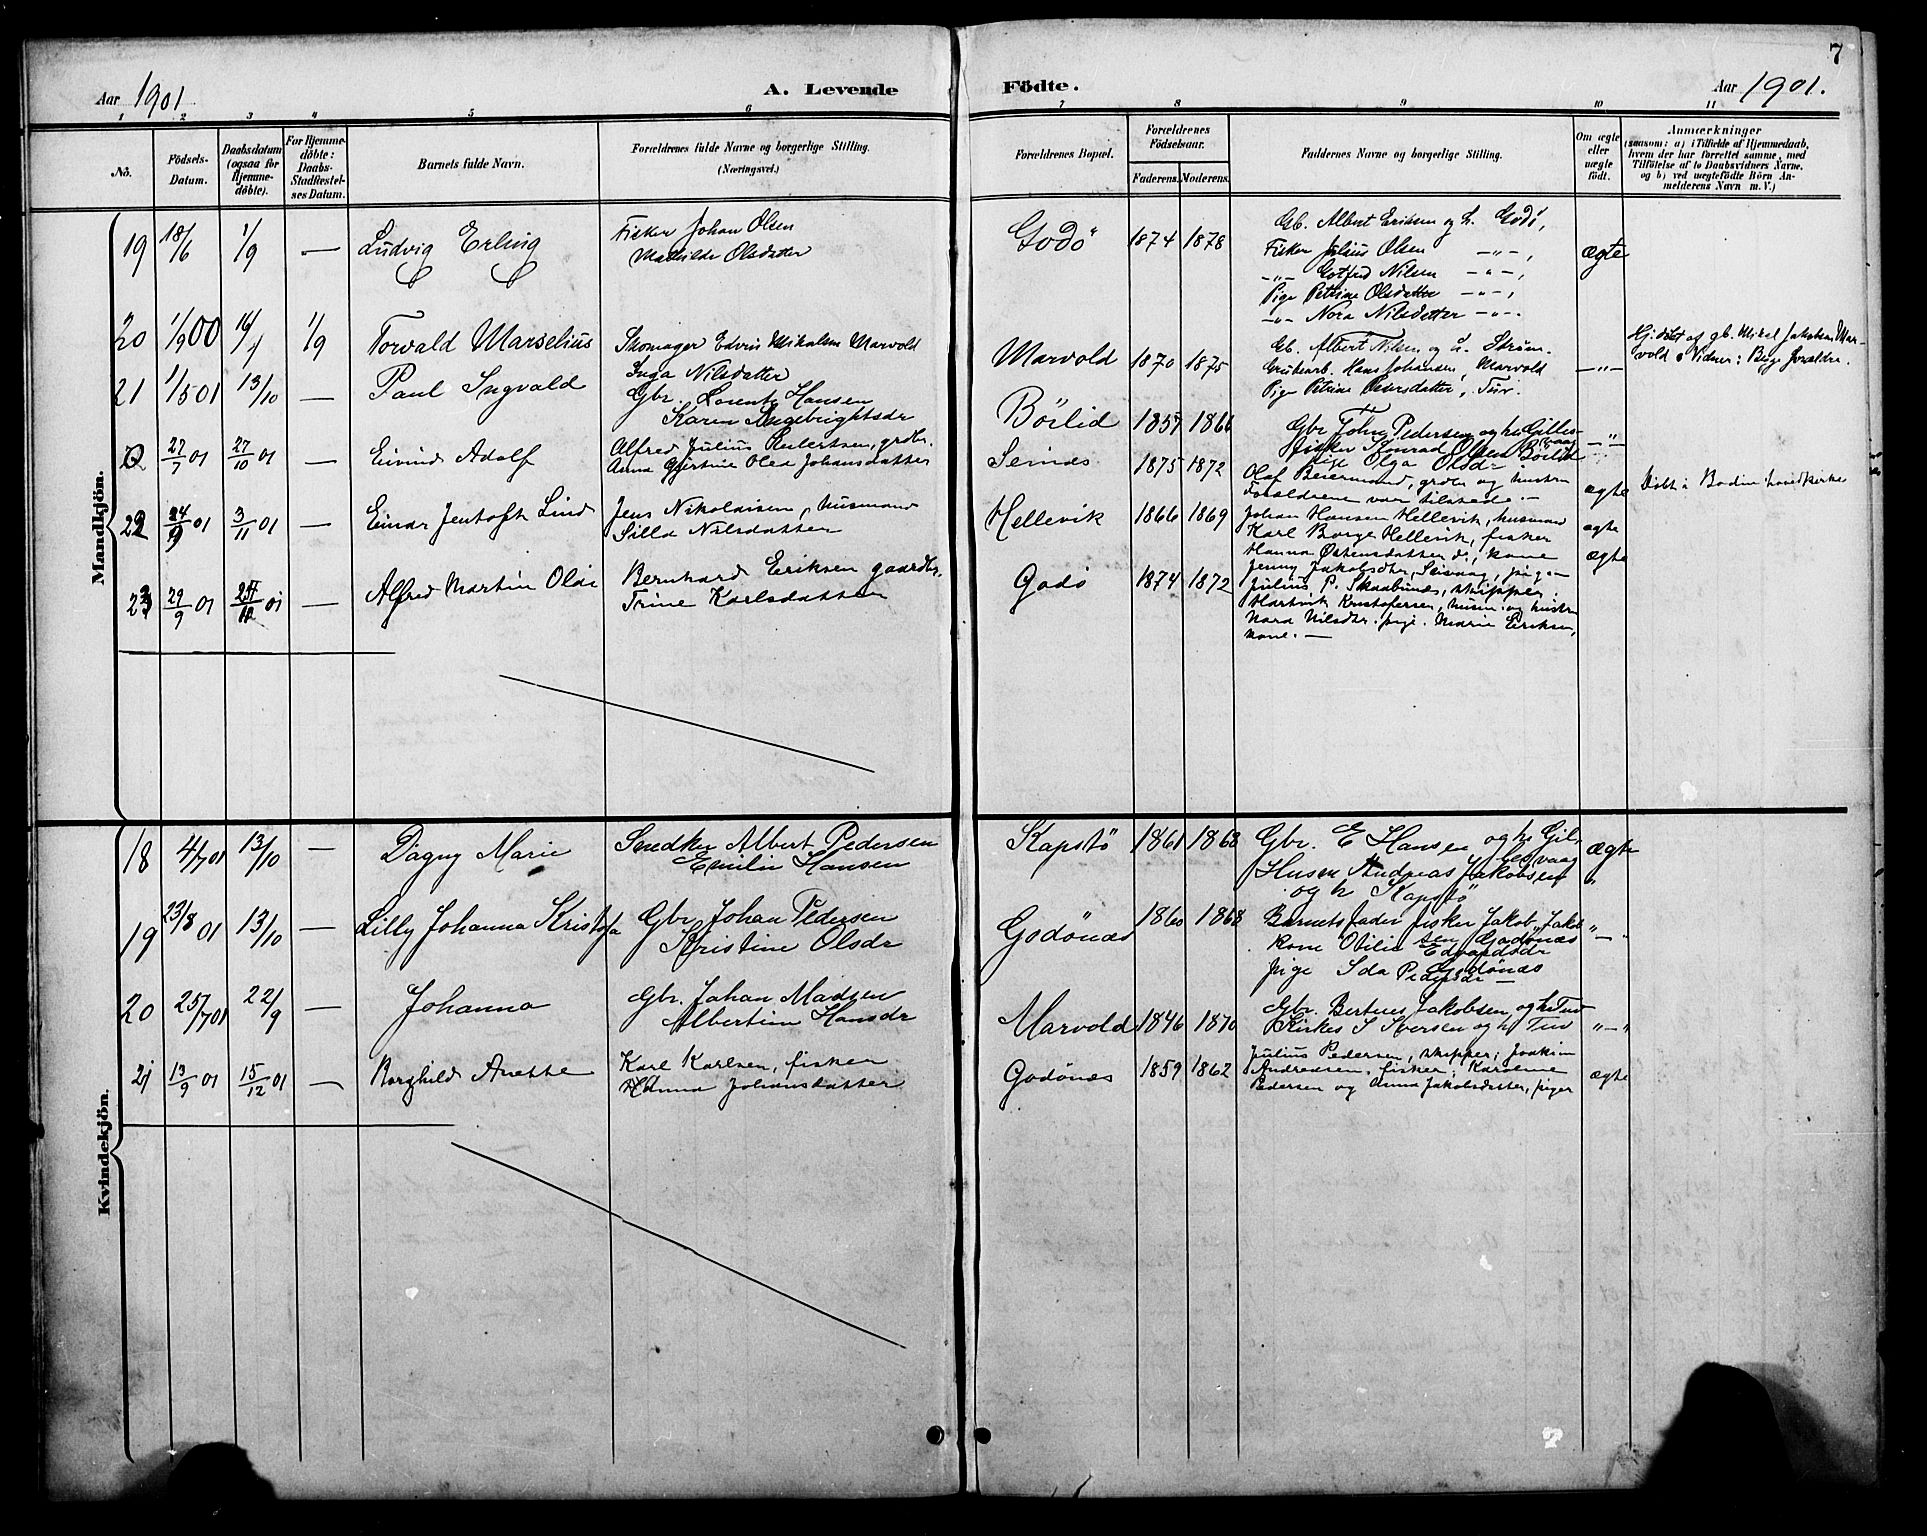 7
Aar 1901
A. Levende Födte.
Aar 1901.
1 2 3 4 5 6 7 8 9 10 11
No.
Födsels-Datum.
Daabsdatum (ogsaa for Hjemme-döbte).
For Hjemme-döbte: Daabs-Stadfæstel-ses Datum.
Barnets fulde Navn.
Forældrenes fulde Navne og borgerlige Stilling.
(Næringsvei.)
Forældrenes Bopæl.
Forældrenes Födselsaar.
Faderens. Moderens.
Faddernes Navne og borgerlige Stilling.
Om ægte eller uægte födt.
Anmærkninger
(saasom: a) i Tilfælde af Hjemmedaab,
hvem der har forrettet samme, med
Tilföielse af to Daabsvidners Navne,
og b) ved uægtefödte Börn An-
melderens Navn m. V.)
Mandkjön.
19 18/6 1/9 — Ludvig Erling
Fisker Johan Olsen
Mathilde Olsdatter
Godö 1874 1878
Gb. Albert Eriksen og h. Godö,
Fisker Julius Olsen —"—,
—"— Gotfred Nilsen —"—,
Pige Petrine Olsdatter —"—,
—"— Nora Nilsdatter —"—.
ægte
20 1/9 00 16/1 1/9 Torvald Marselius
Skomager Edvin Mikalsen Marvold
Inga Nilsdatter
Marvold 1870 1875
Gb. Albert Nilsen og h. Ström.
Grubearb. Hans Johansen, Marvold
Pige Petrine Peersdatter, Tuv.
—"—
Hj. döbt af gb. Mikal Jakobsen Mar-
vold Vidner: Bege forældre.
21 1/5 01 13/10 — Paul Ingvald
Gbr. Lorents Hansen
Karen Ingebrigtsdr
Börlid 1857 1866
Gbr John Pedersen og h. Gilles-
vaag
Fisker Konrad Olsen Börlid
Pige Olga Olsdr
—"—
22 27/7 01 27/10 01 — Eivind Adolf
Alfred Julius Eilertsen, grdbr.
Anna Gjertine Olea Johansdatter
Seines 1875 1872
Olaf Beiermand, grdbr og hustru
Forældrene var tilstede. —
ægte
Döbt i Bodin hovedkirke
22 24/9 01 3/11 01 — Einar Jentoft Lind
Jens Nikolaisen, husmand
Silla Nilsdatter
Hellevik 1866 1869
Johan Hansen Hellevik, husmand
Karl Borge Hellevik, fisker
Hanna Östensdatter d., kone
Jenny Jakobsdtr, Seivaag, pige —
ægte
23 29/9 01 01 — Alfred Martin Olai
Bernhard Eriksen gaardbr.
Trine Karlsdatter
Godö 1874 1872
Julius P. Skaabnæs, skipper.
Hartvik Kristofersen, husm. og hustru
Nora Nilsdtr. pige. Marie Eriksen,
kone. —
ægte
Kvindekjön.
18 4/7 01 13/10 — Dagny Marie
Snedker Albert Pedersen
Emilie Hansen
Kapstö 1861 1868
Gbr. E Hansen og h. Gil-
lesvaag
Husm Andreas Jakobsen
og h Kapstö
ægte
19 23/8 01 13/10 — Lilly Johanna Kristofa
Gbr Johan Pedersen
Kristine Olsdr
Godönæs 1860 1868
Barnets fader fisker Jakob Jakob-
sen Godönæs
kone Otilie Edvardsdr
pige Ida Pedersdr Godönæs —
"—"
20 25/7 01 22/9 — Johanna
Gbr. Johan Madsen
Albertine Hansdr
Marvold 1846 1870
Gbr. Berteus Jakobsen og h. Tuv
Kirkes S Iversen og h Tuv
"—"
21 13/9 01 15/12 01 — Borghild Anette
Karl Karlsen, fisker
Hanna Johansdatter
Godönæs 1859 1862
Julius Pedersen, skipper; Joakim
Andreasen, fisker; Karoline
Pedersen og Anna Jakobsdatter, piger
ægte